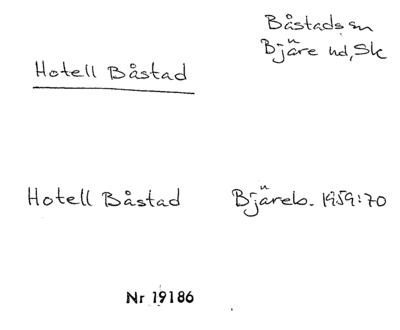 Båstads sn
Bjäre hd, Sk
Hotell Båstad
Hotell Båstad Bjäreb. 1959:70
Nr 19186